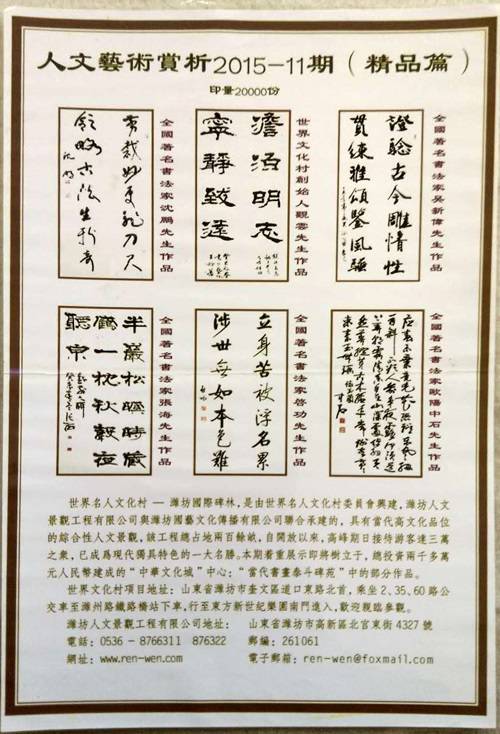 人文藝術賞析2015—11期（精品篇）
印量20000份
全國著名書法家沈鵬先生作品
剪裁妙處非刀尺
領略古法生新奇
沈鵬
世界文化村創始人觀雲先生作品
澹泊明志
寧靜致遠
全國著名書法家吳新偉先生作品
證驗古今雕情性
貫練雅頌鑒風騷
全國著名書法家張海先生作品
半巖松暝時藏
鶴一枕秋聲夜
聽泉
全國著名書法家啓功先生作品
立身苦被浮名累
涉世無如本色難
啟功
全國著名書法家歐陽中石先生作品
世界名人文化村 — 濰坊國際碑林，是由世界名人文化村委員會興建，濰坊人文
景觀工程有限公司與濰坊國藝文化傳播有限公司聯合承建的，具有當代高文化品位
的綜合性人文景觀，該工程總占地兩百餘畝，自開放以來，高峰期日接待游客達三萬
之衆，已成爲現代獨具特色的一大名勝。本期着重展示即將樹立于，總投資兩千多萬
元人民幣建成的“中華文化城”中心：“當代書畫泰斗碑苑”中的部分作品。
世界文化村項目地址：山東省濰坊市奎文區道口東路北首，乘坐 2、35、60 路公
交車至濰州路鐵路橋站下車，行至東方新世紀樂園南門進入，歡迎親臨參觀。
濰坊人文景觀工程有限公司地址： 山東省濰坊市高新區北宫東街 4327 號
電話：0536 - 8766311 876322 郵編：261061
網址：www.ren-wen.com 電子郵箱：ren-wen@foxmail.com